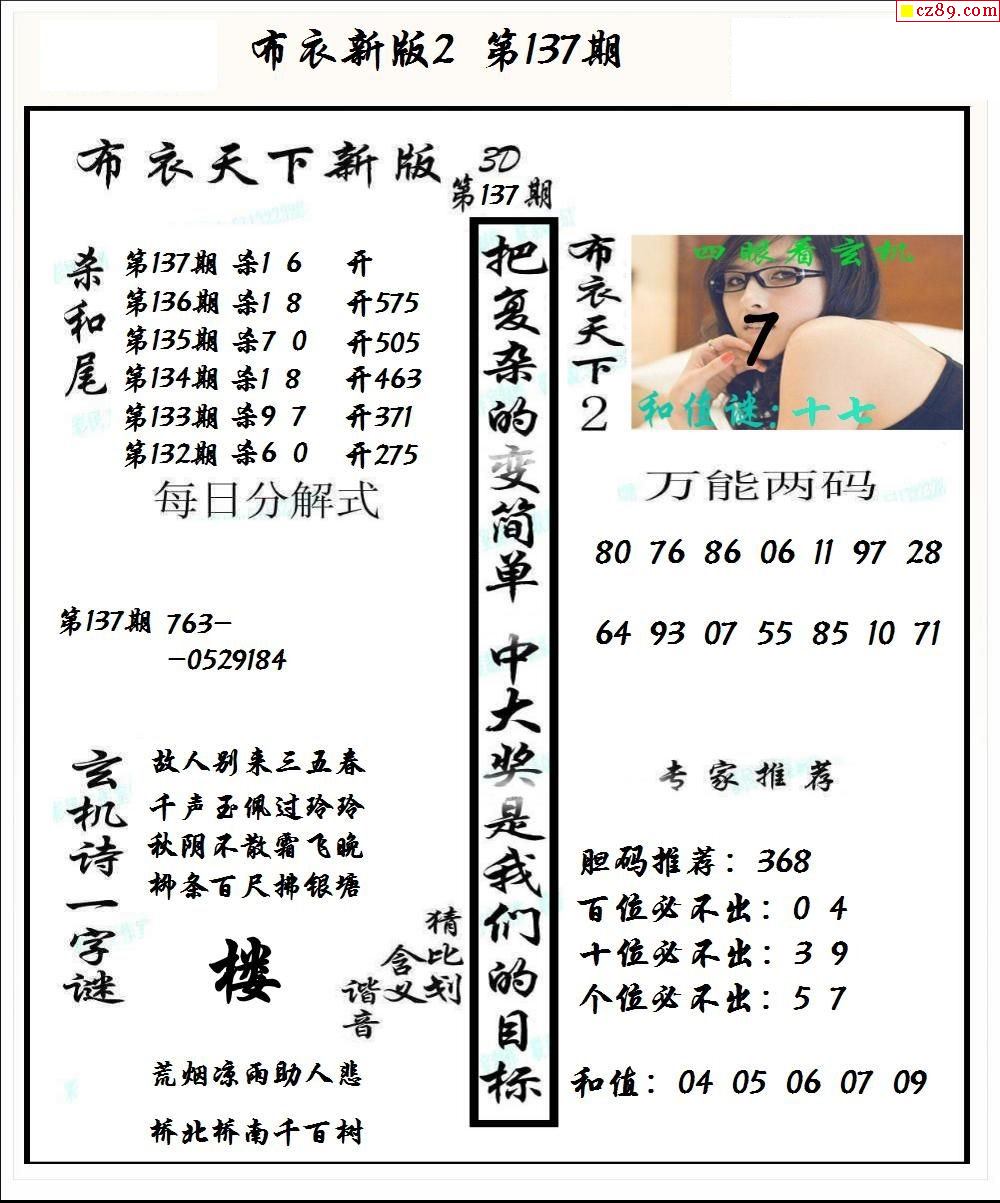 cz89.com
布衣新版2 第137期
布衣天下新版 3D
第137期
杀和尾
第137期 杀1 6 开
第136期 杀1 8 开575
第135期 杀7 0 开505
第134期 杀1 8 开463
第133期 杀9 7 开371
第132期 杀6 0 开275
每日分解式
第137期 763-
-0529184
玄机诗一字谜
故人别来三五春
千声玉佩过玲玲
秋阴不散霜飞晚
柳条百尺拂银塘
楼
猜比划
含义
谐音
荒烟凉雨助人悲
桥北桥南千百树
把复杂的变简单 中大奖是我们的目标
布衣天下2
四眼看玄机
7
和值谜:十七
万能两码
80 76 86 06 11 97 28
64 93 07 55 85 10 71
专家推荐
胆码推荐：368
百位必不出：0 4
十位必不出：3 9
个位必不出：5 7
和值：04 05 06 07 09